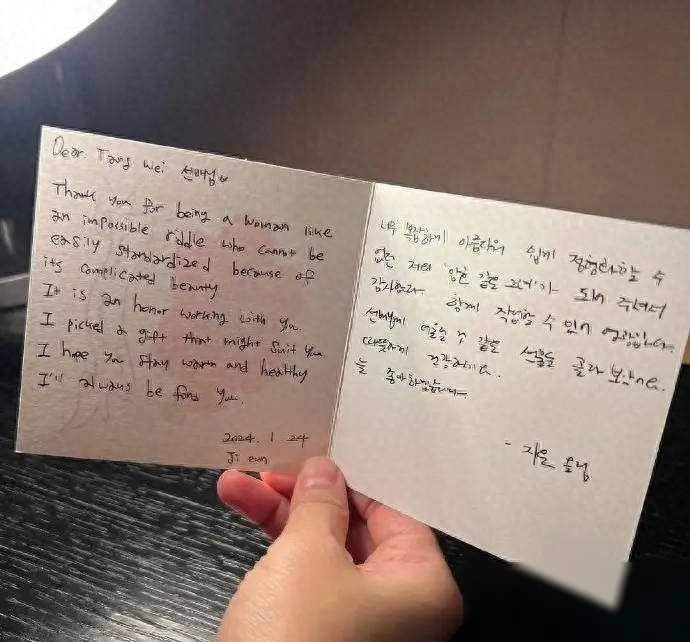 Dear. Tang Wei 선배님♥
Thank you for being a woman like
an impossible riddle who cannot be
easily standardized because of
its complicated beauty
It is an honor working with you.
I picked a gift that might suit you
I hope you stay warm and healthy
I'll always be fond you.
2024. 1 24
Ji eun
너무 복잡하게 아름다워 쉽게 정형화할 수
없는 저의 '암호 같은 그녀'가 되어 주셔서
감사합니다. 함께 작업할 수 있어 영광입니다.
선배님께 어울릴 것 같은 선물을 골라 보았어요.
따뜻하게 건강하세요.
늘 좋아하겠습니다
- 지은 올림